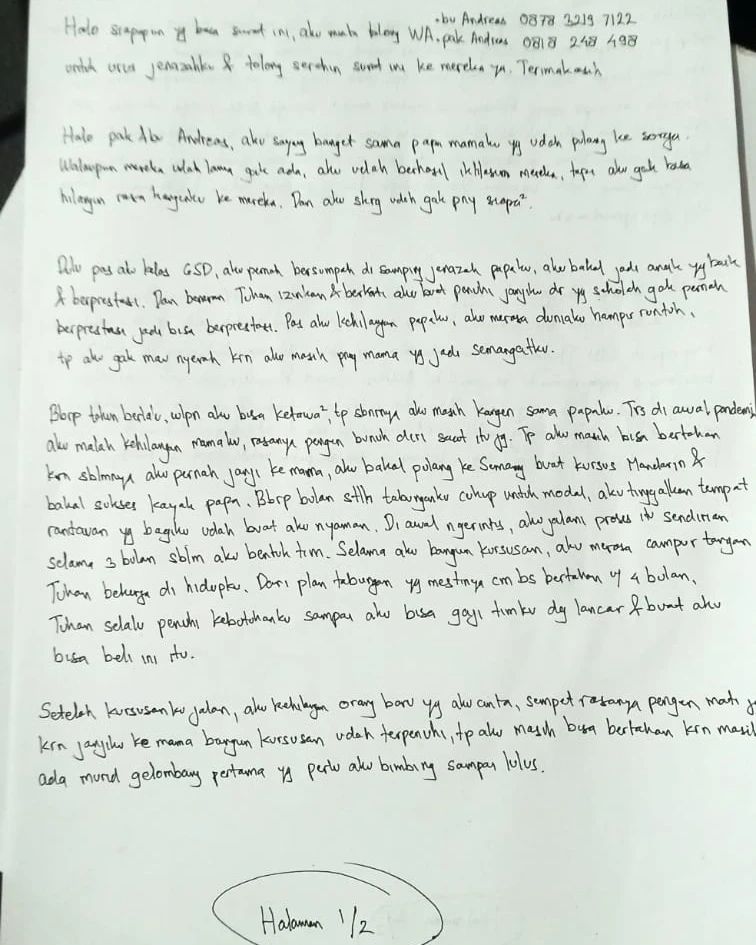 ·bu Andreas 0878 3219 7122
Halo siapapun yg baca surat ini, aku minta tolong WA. pak Andreas 0818 248 498
untuk urus jenazahku & tolong serahin surat ini ke mereka ya. Terimakasih
Halo pak /bu Andreas, aku sayang banget sama papa mamaku yg udah pulang ke sorga.
Walaupun mereka udah lama gak ada, aku udah berhasil ikhlasin mereka, tapi aku gak bisa
hilangin rasa kangenku ke mereka. Dan aku skrg udah gak pny siapa².
Dulu pas aku kelas 6SD, aku pernah bersumpah di samping jenazah papaku, aku bakal jadi anak yg baik
& berprestasi. Dan beneran Tuhan izinkan & berkati aku buat penuhi janjiku dr yg sekolah gak pernah
berprestasi jadi bisa berprestasi. Pas aku kehilangan papaku, aku merasa duniaku hampir runtuh,
tp aku gak mau nyerah krn aku masih pny mama yg jadi semangatku.
Bbrp tahun berlalu, wlpn aku bisa ketawa², tp sbnrnya aku masih kangen sama papaku. Trs di awal pandemi
aku malah kehilangan mamaku, rasanya pengen bunuh diri saat itu jg. Tp aku masih bisa bertahan
krn sblmnya aku pernah janji ke mama, aku bakal pulang ke Semarang buat kursus Mandarin &
bakal sukses kayak papa. Bbrp bulan stlh tabunganku cukup untuk modal, aku tinggalkan tempat
rantauan yg bagiku udah buat aku nyaman. Di awal ngerintis, aku jalani proses itu sendirian
selama 3 bulan sblm aku bentuk tim. Selama aku bangun kursusan, aku merasa campur tangan
Tuhan bekerja di hidupku. Dari plan tabungan yg mestinya cm bs bertahan u/ 4 bulan,
Tuhan selalu penuhi kebutuhanku sampai aku bisa gaji timku dg lancar & buat aku
bisa beli ini itu.
Setelah kursusanku jalan, aku kehilangan orang baru yg aku cinta, sempet rasanya pengen mati
krn janjiku ke mama bangun kursusan udah terpenuhi, tp aku masih bisa bertahan krn masih
ada murid gelombang pertama yg perlu aku bimbing sampai lulus.
Halaman 1/2